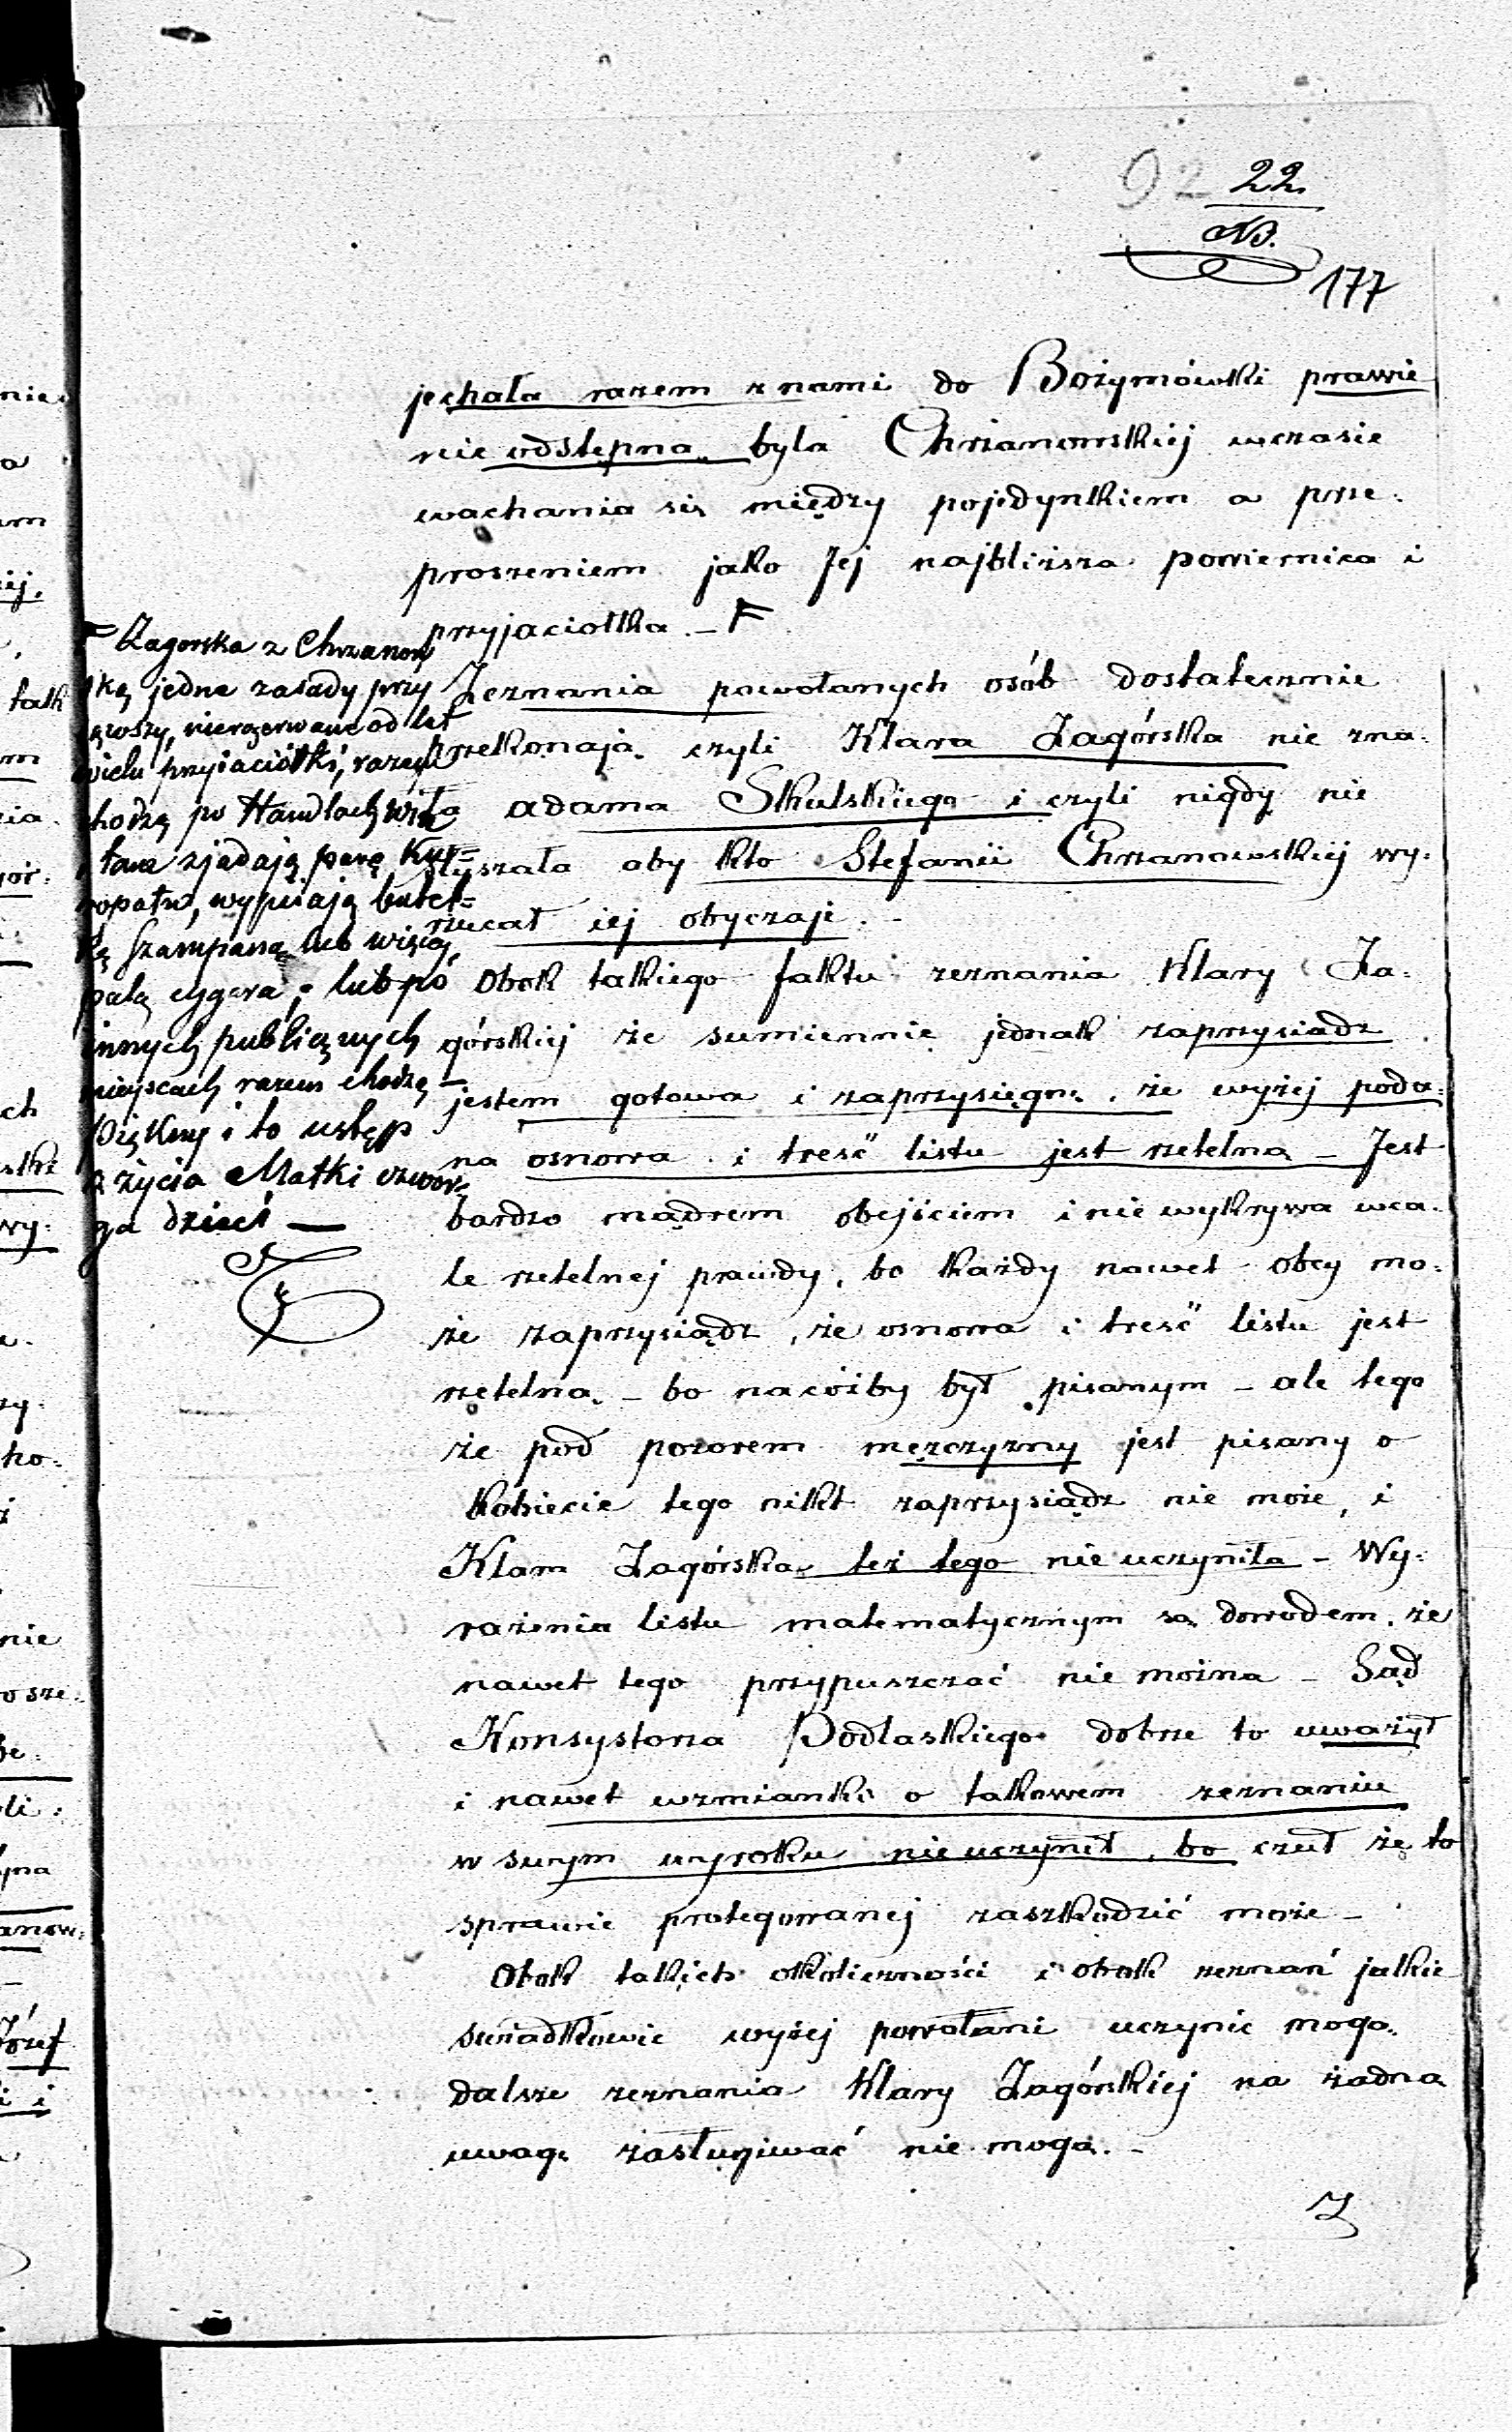 92 22
NB.
177
jechała razem z nami do Bożymówki prawie
nie odstępną była Chrzanowskiej wczasie
wachania się między pojedynkiem a prze:
proszeniem jako Jej najbliższa powiernica i
przyjaciołka. – F
Zeznania powołanych osób dostatecznie
przekonają czyli Klara Zagórska nie zna:
ła adama Skulskiego i czyli nigdy nie
słyszała aby kto Stefanii Chrzanowskiej wy:
rzucał iej obyczaje. –
Obok takiego faktu zeznania Klary Za:
górskiej że sumiennie jednak zaprzysiądz
jestem gotowa i zaprzysięgnę, że wyżej poda:
na osnowa i treść listu jest rzetelną – Jest
bardzo mądrem obejściem i nie wykrywa wca:
le rzetelnej prawdy, bo każdy nawet obcy mo:
że zaprzysiądz, że osnowa i treść listu jest
rzetelną – bo nacóżby był pisanym – ale tego
że pod pozorem męzczyzny jest pisany o
kobiecie tego nikt zaprzysiądz nie może, i
Klara Zagórska też tego nie uczyniła – Wy:
rażenia listu matematycznym są dowodem, że
nawet tego przypuszczać nie można – Sąd
Konsystorza Podlaskiego dobrze to uważył
i nawet wzmianki o takowem zeznaniu
w swym wyroku nie uczynił, bo czuł że to
sprawie protegowanej zaszkodzić może –
Obok takich okoliczności i obok zeznań jakie
swiadkowie wyżej powołani uczynić mogą
dalsze zeznania Klary Zagórskiej na żadną
uwagę zasługiwać nie mogą. –
Z
F Zagorska z Chrzanow
ską jedne zasady przy
nierozerwane od lat
wielu przyiaciółki, razem
chodzą po Handlach
tam zjadają parę Kur=
opatw, wypijają butel=
kę Szampana lub więcej,
palą cygara; lub po
innych publicznych
mieyscach razem chodzą –
Piękny i to ustęp
z życia Matki czwor
ga dzieci —